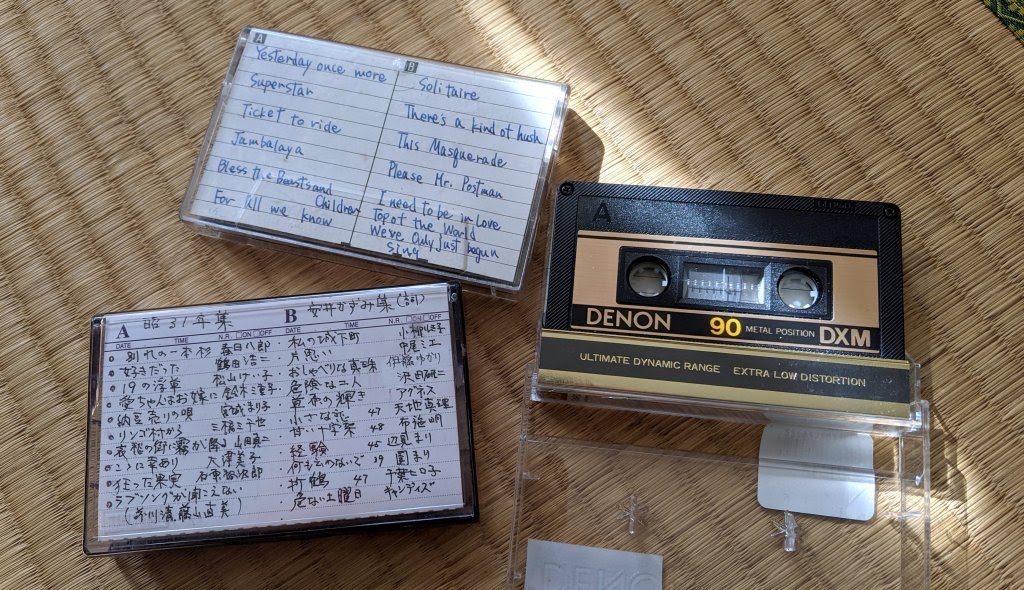 A
Yesterday once more
Superstar
Ticket to ride
Jambalaya
Bless the Beasts and
Children
For all we know
B
Solitaire
There's a kind of hush
This Masquerade
Please Mr. Postman
I need to be in Love
Top of the World
We've Only just begun
Sing
A
DENON 90 METAL POSITION DXM
ULTIMATE DYNAMIC RANGE EXTRA LOW DISTORTION
A 昭31年集
DATE TIME N.R. □ON □OFF
・別れの一本杉 春日八郎
・好きだった 鶴田浩二
・19の浮草 松山けい子
・愛ちゃんはお嫁に 鈴木三重子
・納豆売りの唄 宮城まり子
・リンゴ村から 三橋三千也
・夜霧の街に霧が降る 山田真二
・ここに幸あり 大津美子
・狂った果実 石原裕次郎
・ラブソングが聞こえない
(芥川澄 藤山直美)
B 安井かずみ集(詞)
DATE TIME N.R. □ON □OFF
・私の城下町 小柳ルミ子
・片思い 中尾ミエ
・おしゃべりな真珠 伊東ゆかり
・危険な二人 沢田研二
・草原の輝き アグネス
・小さな恋 47 天地真理
・甘い十字架 48 布施明
・経験 45 辺見まり
・何もないで 39 園まり
・折鶴 47 千葉ヒロ子
・危ない土曜日 キャンディズ
DENO